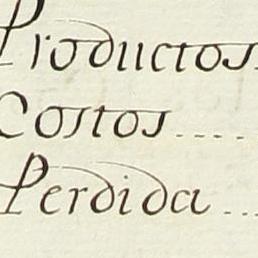 Productos
Costos....
Perdida...